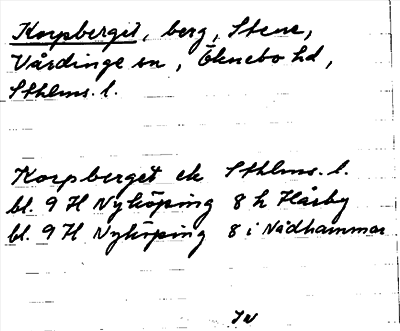 Korpberget, berg, Stene,
Vårdinge sn, Öknebo hd,
Sthlms. l.
Korpberget ek Sthlms. l.
bl. 9 H Nyköping 8 h Hårby
bl. 9 H Nyköping 8 i Nådhammar